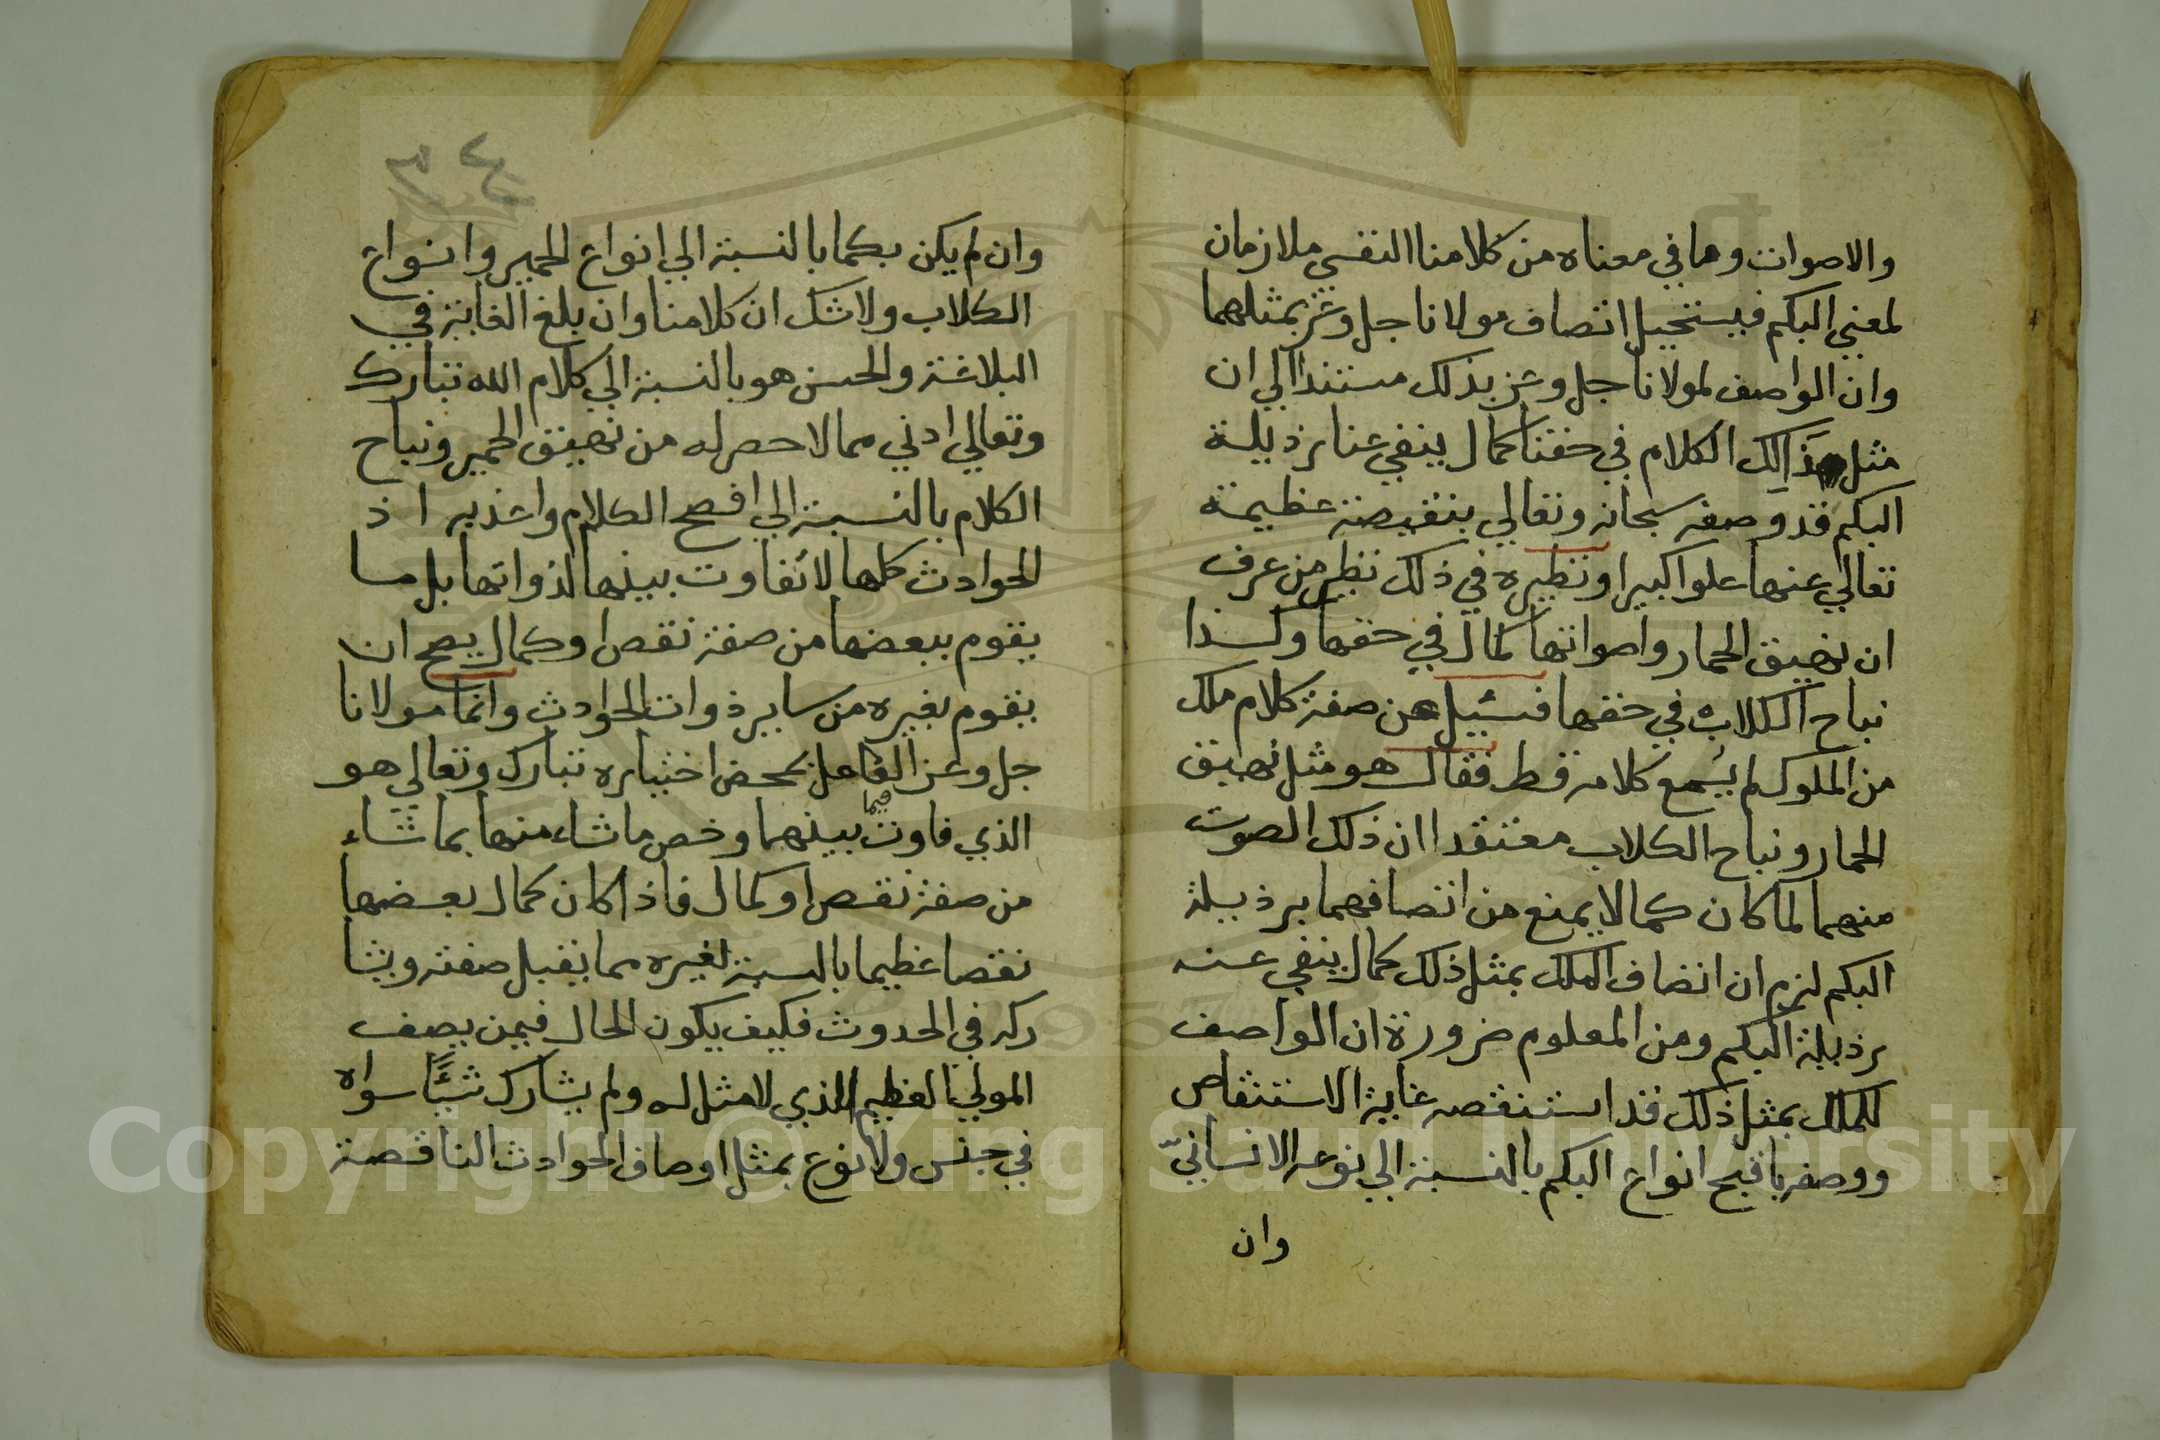 والاصوات وما في معناه من كلامنا النفسي ملازمان
لمعني البكم فيستحيل اتصاف مولانا جل وعز بمثلهما
وان الواصف لمولانا جل وعز بذلك مستندا الي ان
مثل ذالك الكلام في حقنا كمال ينفي عنا رذيلة
البكم قد وصفه سبحانه وتعالي بنقيصة عظيمة
تعالي عنها علوا كبيرا ونظيره في ذلك نظير من عرف
ان نهيق الحمار واصواتها كمال في حقها وكذا
نباح الكلاب في حقها فسئيل عن صفة كلام ملك
من الملوك لم يسمع كلامه قط فقال هو مثل نهيق
الحمار ونباح الكلاب معتقدا ان ذلك الصوت
منهما لما كان كمالا يمنع من اتصافهما برذيلة
البكم لزم ان اتصاف الملك بمثل ذلك كمال ينفي عنه
رذيلة البكم ومن المعلوم ضرورة ان الواصف
للملك بمثل ذلك قد استنقصه غاية الاستنقاص
ووصفه باقبح انواع البكم بالنسبة الي نوعه الانساني
وان
وان لم يكن بكما بالنسبة الي انواع الحمير وانواع
الكلاب ولا شك ان كلامنا وان بلغ الغاية في
البلاغة والحسن هو بالنسبة الي كلام الله تبارك
وتعالي ادني مما لا حصر له من نهيق الحمير ونباح
الكلام بالنسبة الي افصح الكلام واعذبه اذ
الحوادث كلها لا تفاوت بينها لذواتها بل ما
يقوم ببعضها من صفة نقص او كمال يصح ان
يقوم بغيره من ساير ذوات الحوادث وانما مولانا
جل وعز الفاعل بمحض اختياره تبارك وتعالي هو
الذي فاوت فيما بينهما وخص ما شاء منها بما شاء
من صفة نقص او كمال فاذا كان كمال بعضها
نقصا عظيما بالنسبة لغيره مما يقبل صفته ويشا
ركه في الحدوث فكيف يكون الحال فيمن يصف
المولي العظيم الذي لا مثل له ولم يشارك شيئا سواه
في جنس ولا نوع بمثل اوصاف الحوادث الناقصة
Copyright © King Saud University